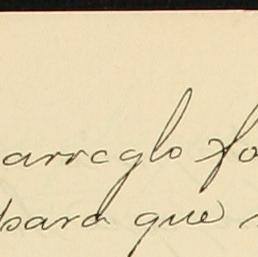 arreglo fo
para que